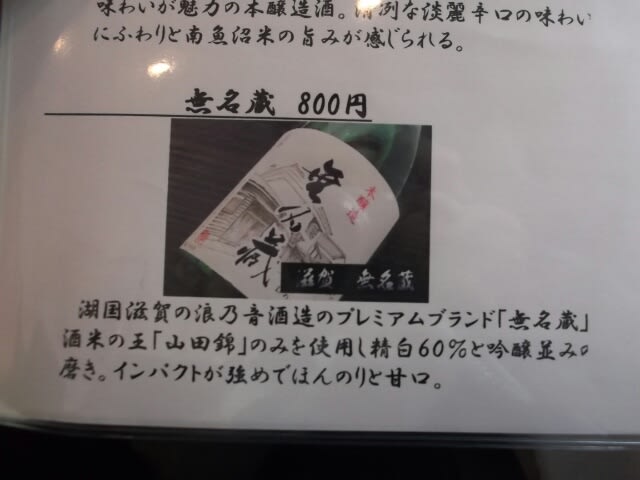 味わいが魅力の本醸造酒。清冽な淡麗辛口の味わい
にふわりと南魚沼米の旨みが感じられる。
無名蔵 800円
本醸造
無名蔵
滋賀 無名蔵
湖国滋賀の浪乃音酒造のプレミアムブランド「無名蔵」
酒米の王「山田錦」のみを使用し精白60%と吟醸並みの
磨き。インパクトが強めでほんのりと甘口。